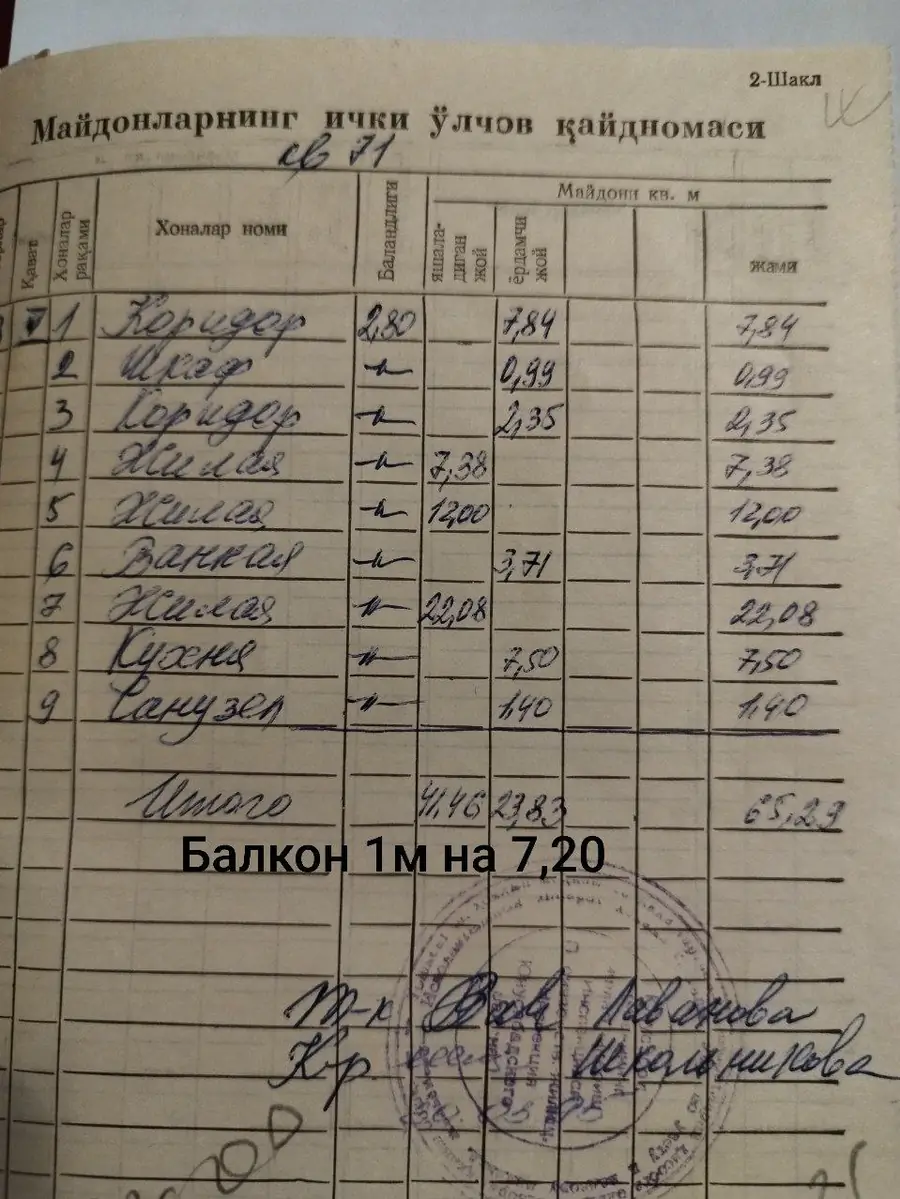 2-Шакл
Майдонларнинг ички ўлчов қайдномаси
кв 71
Қават
Хоналар рақами
Хоналар номи
Баландлиги
Майдони кв. м
яшала-
диган
жой
ёрдамчи
жой
жами
1 Коридор 2,80 7,84 7,84
2 Шкаф -"- 0,99 0,99
3 Коридор -"- 2,35 2,35
4 Жилая -"- 7,38 7,38
5 Жилая -"- 12,00 12,00
6 Ванная -"- 3,71 3,71
7 Жилая -"- 22,08 22,08
8 Кухня -"- 7,50 7,50
9 Санузел -"- 1,40 1,40
Итого 41,46 23,83 65,29
Балкон 1м на 7,20
Т-к Лаванова
Школьникова